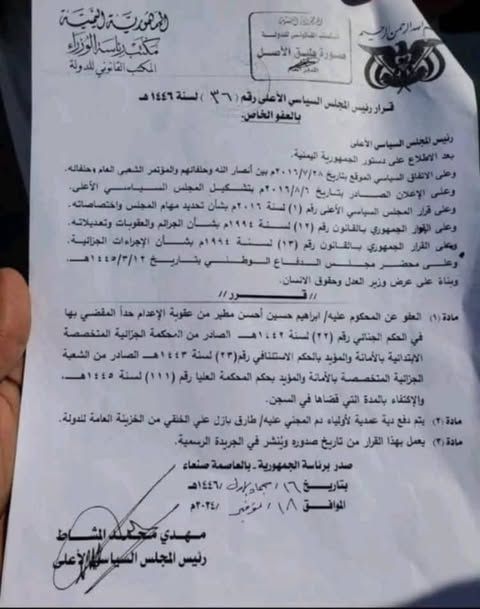 بسم الله الرحمن الرحيم
الجمهورية اليمنية
مكتب رئاسة الوزراء
المكتب القانوني للدولة
الجمهورية اليمنية
صورة طبق الأصل
قرار رئيس المجلس السياسي الأعلى رقم (٣٦) لسنة ١٤٤٦هـ
بالعفو الخاص.
رئيس المجلس السياسي الأعلى
بعد الاطلاع على دستور الجمهورية اليمنية.
وعلى الاتفاق السياسي الموقع بتاريخ ٢٠١٦/٧/٢٨م بين أنصار الله وحلفائهم والمؤتمر الشعبي العام وحلفائه.
وعلى الإعلان الصادر بتاريخ ٢٠١٦/٨/٦م بتشكيل المجلس السياسي الأعلى.
وعلى قرار المجلس السياسي الأعلى رقم (١) لسنة ٢٠١٦م بشأن تحديد مهام المجلس واختصاصاته.
وعلى القرار الجمهوري بالقانون رقم (١٢) لسنة ١٩٩٤م بشأن الجرائم والعقوبات وتعديلاته.
وعلى القرار الجمهوري بالقانون رقم (١٣) لسنة ١٩٩٤م بشأن الإجراءات الجزائية.
وعلى محضر مجلس الدفاع الوطني بتاريخ ١٤٤٥/٣/١٢هـ
وبناءً على عرض وزير العدل وحقوق الانسان.
// قـــــرر //
مادة (١) العفو عن المحكوم عليه/ ابراهيم حسين أحسن مطير من عقوبة الإعدام حداً المقضي بها
في الحكم الجنائي رقم (٢٢) لسنة ١٤٤٢هـ الصادر من المحكمة الجزائية المتخصصة
الابتدائية بالأمانة والمؤيد بالحكم الاستئنافي رقم(٢٣) لسنة ١٤٤٣هـ الصادر من الشعبة
الجزائية المتخصصة بالأمانة والمؤيد بحكم المحكمة العليا رقم (١١١) لسنة ١٤٤٥هـ،
والإكتفاء بالمدة التي قضاها في السجن.
مادة (٢) يتم دفع دية عمدية لأولياء دم المجني عليه/ طارق بازل علي الخلقي من الخزينة العامة للدولة.
مادة (٣) يعمل بهذا القرار من تاريخ صدوره ويُنشر في الجريدة الرسمية.
صدر برئاسة الجمهورية - بالعاصمة صنعاء
بتاريخ ١٦/ جماد الاول /١٤٤٦هـ
الموافق ١٨/ نوفمبر /٢٠٢٤م
مهدي محمد المشاط
رئيس المجلس السياسي الأعلى